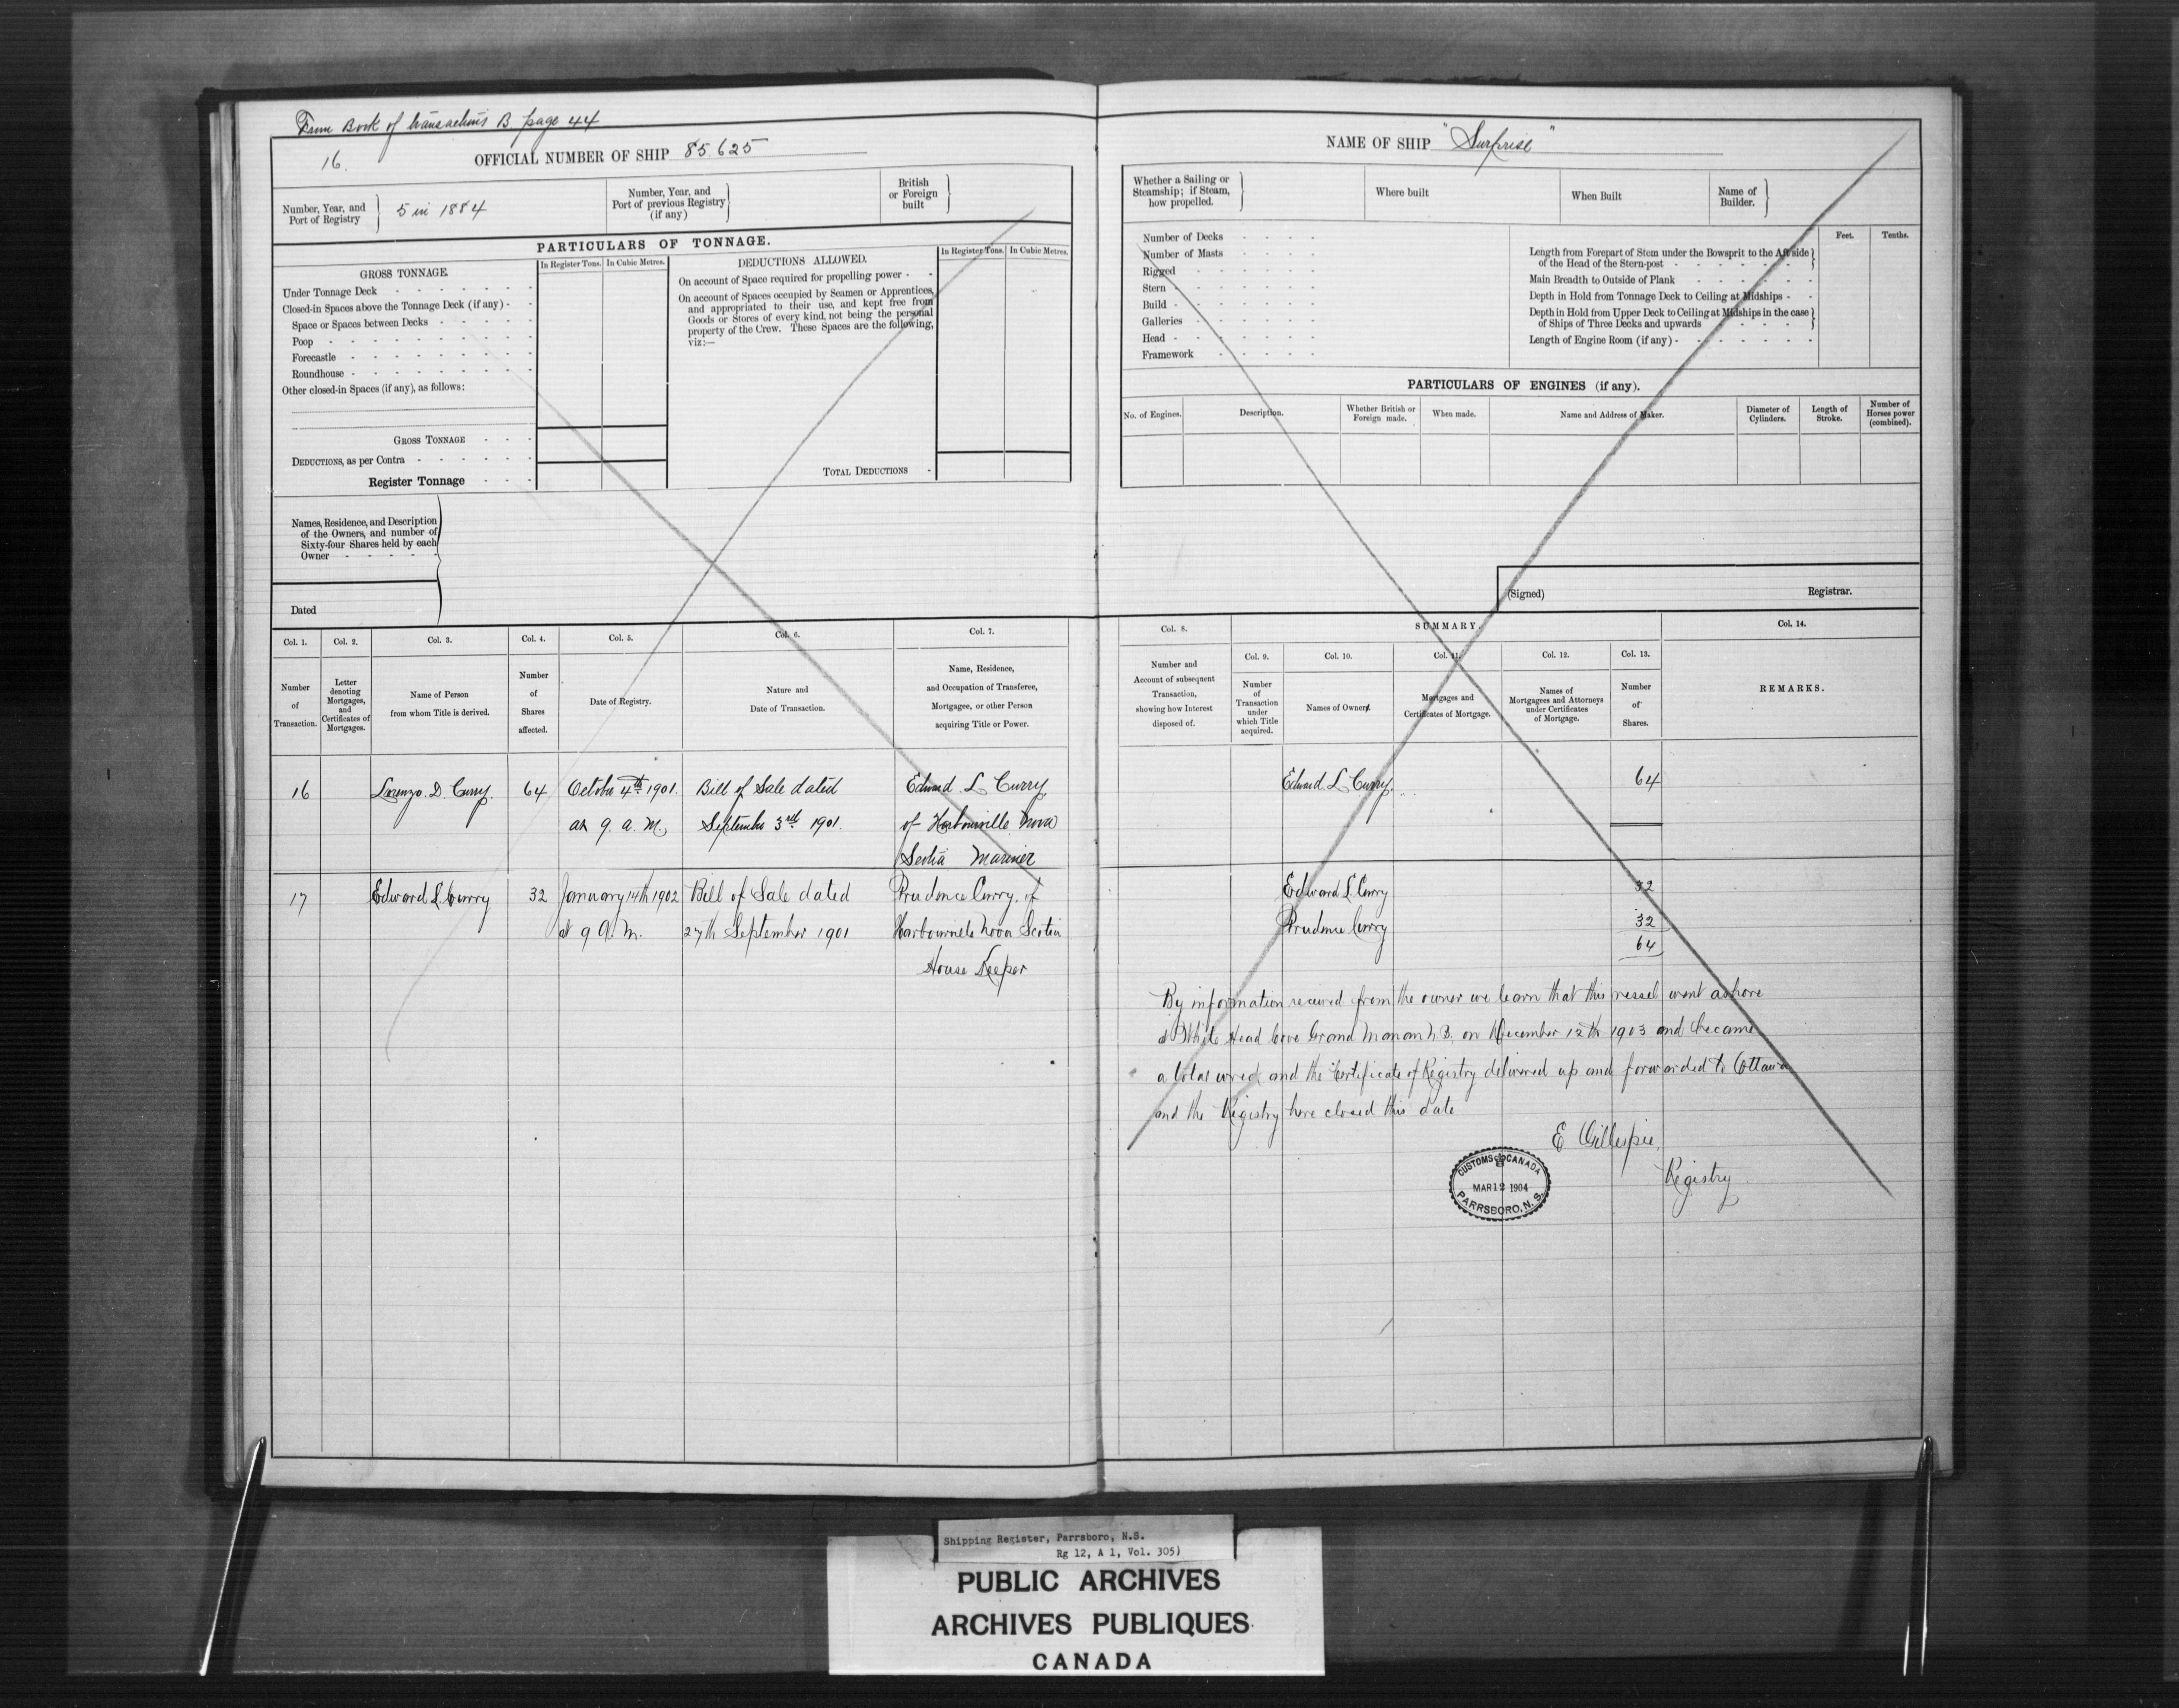 From Book of transactions B. page 44
16.
OFFICIAL NUMBER OF SHIP 85.625
Number, Year, and
Port of Registry
5 in 1884
Number, Year, and
Port of previous Registry
(if any)
British
or Foreign
built
PARTICULARS OF TONNAGE.
GROSS TONNAGE.
In Register Tons. In Cubic Metres.
Under Tonnage Deck
Closed-in Spaces above the Tonnage Deck (if any)
Space or Spaces between Decks
Poop
Forecastle
Roundhouse
Other closed-in Spaces (if any), as follows:
GROSS TONNAGE
DEDUCTIONS, as per Contra
Register Tonnage
DEDUCTIONS ALLOWED.
In Register Tons. In Cubic Metres.
On account of Space required for propelling power
On account of Spaces occupied by Seamen or Apprentices,
and appropriated to their use, and kept free from
Goods or Stores of every kind, not being the personal
property of the Crew. These Spaces are the following,
viz:—
TOTAL DEDUCTIONS
Names, Residence, and Description
of the Owners, and number of
Sixty-four Shares held by each
Owner
Dated
Col. 1. Col. 2. Col. 3. Col. 4. Col. 5. Col. 6. Col. 7.
Number
of
Transaction.
Letter
denoting
Mortgages,
and
Certificates of
Mortgages.
Name of Person
from whom Title is derived.
Number
of
Shares
affected.
Date of Registry.
Nature and
Date of Transaction.
Name, Residence,
and Occupation of Transferee,
Mortgagee, or other Person
acquiring Title or Power.
16 Lorenzo. D. Curry. 64 October 4th 1901. Bill of Sale dated Edward L Curry
at 9. a. M. September 3rd 1901. of Harbourville Nova
Scotia Mariner
17 Edward L. Curry 32 January 14th 1902 Bill of Sale dated Prudence Curry, of
at 9 A. M. 27th September 1901 Harbourville Nova Scotia
House Keeper
NAME OF SHIP "Surprise"
Whether a Sailing or
Steamship; if Steam,
how propelled.
Where built
When Built
Name of
Builder.
Number of Decks
Number of Masts
Rigged
Stern
Build
Galleries
Head
Framework
Feet. Tenths.
Length from Forepart of Stem under the Bowsprit to the Aft side
of the Head of the Stern-post
Main Breadth to Outside of Plank
Depth in Hold from Tonnage Deck to Ceiling at Midships
Depth in Hold from Upper Deck to Ceiling at Midships in the case
of Ships of Three Decks and upwards
Length of Engine Room (if any)
PARTICULARS OF ENGINES (if any).
No. of Engines.
Description.
Whether British or
Foreign made.
When made.
Name and Address of Maker.
Diameter of
Cylinders.
Length of
Stroke.
Number of
Horses power
(combined).
(Signed) Registrar.
Col. 8. SUMMARY. Col. 14.
Col. 9. Col. 10. Col. 11. Col. 12. Col. 13.
Number and
Account of subsequent
Transaction,
showing how Interest
disposed of.
Number
of
Transaction
under
which Title
acquired.
Names of Owners.
Mortgages and
Certificates of Mortgage.
Names of
Mortgagees and Attorneys
under Certificates
of Mortgage.
Number
of
Shares.
REMARKS.
Edward L Curry. 64
Edward L. Curry 32
Prudence Curry 32
64
By information received from the owner we learn that this vessel went ashore
at White Head Cove Grand Manan N.B. on December 12th 1903 and became
a total wreck and the Certificate of Registry delivered up and forwarded to Ottawa
and the Registry here closed this date
E Gillespie,
Registry
CUSTOMS CANADA
MAR 12 1904
PARRSBORO, N.S.
Shipping Register, Parrsboro, N.S.
Rg 12, A 1, Vol. 305)
PUBLIC ARCHIVES
ARCHIVES PUBLIQUES
CANADA